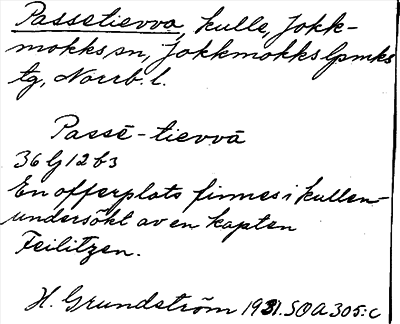 Passetievva, kulle, Jokk-
mokks sn, Jokkmokks lpmks
tg, Norrb. l.
Passē-tievvā
36 G 12 b 3
En offerplats finnes i kullen-
undersökt av en kapten
Feilitzen.
H. Grundström 1931. SOA 305:c